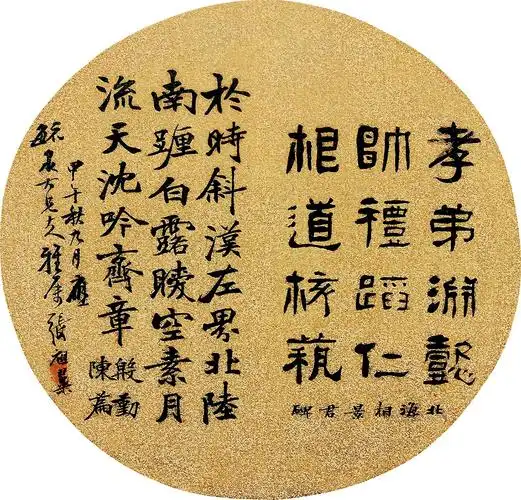 孝弟淵懿
帥禮蹈仁
根道核藝
北海相景君碑
於時斜漢左界北陸
南躔白露曖空素月
流天沈吟齊章殷勤陳篇
甲午秋九月應
兄大人雅屬張祖翼